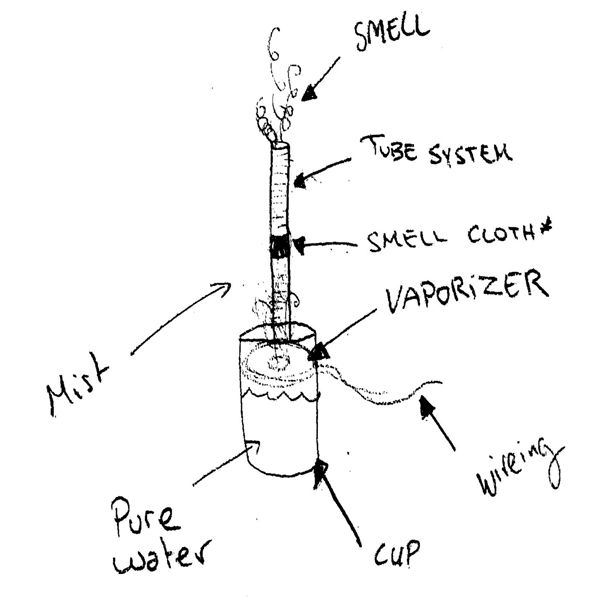 SMELL
TUBE SYSTEM
SMELL CLOTH*
VAPORIZER
Mist
wireing
Pure
water
CUP